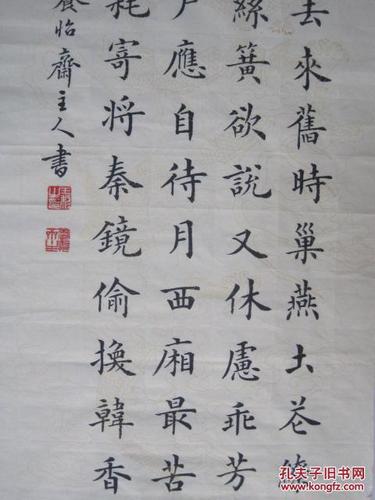 去來舊時巢燕土花繚
絲簧欲說又休慮乖芳
戶應自待月西廂最苦
耗寄將秦鏡偷換韓香
養怡齋主人書
孔夫子旧书网
www.kongfz.com